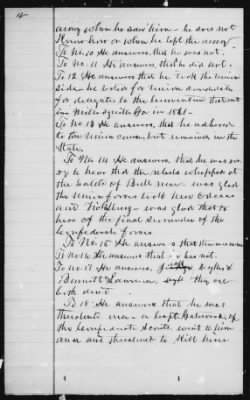 army when he saw him – he does not
know how or when he left the army
To No. 10 He answers, that he was not.
To No. 11 He answers, that he did not.
To 12 He answers that he took the Union
side he voted for Union candidate
for delegate to the Convention that met
in Milledgeville Ga. in 1861–
To No 13 He answers, that he adhered
to the Union cause but remained in the
State
To No. 14 He answers, that he was sor-
ry to hear that the rebels whipped at
the battle of Bull run – was glad
the Union forces took New Orleans
and Vicksburg – was glad that to
hear of the final surrender of the
Confederate forces
To No. 15 He answers that
To No 16 He answers that has not.
To no. 17 He answers,
Bennett Lawrence says they are
both dead
To 18. He answers that he was
threatened once – a Capt. of
the Confederate Scouts went to him
once and threatened to kill him